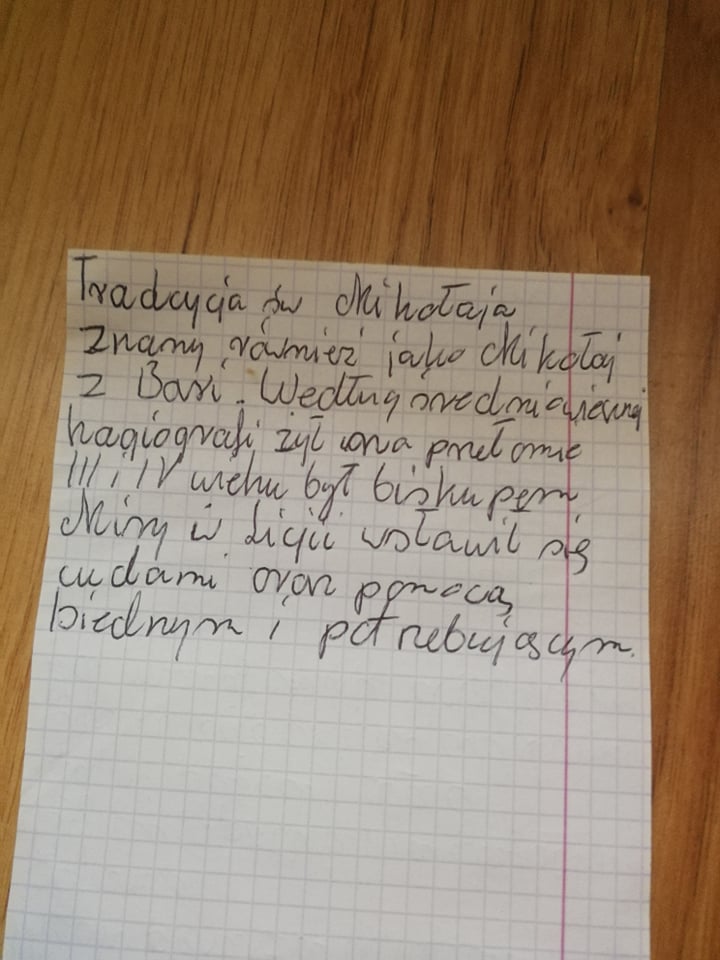 Tradycja św Mikołaja
Znany również jako Mikołaj
z Bari. Według średniowiecznej
hagiografi żył ona przełomie
III i IV wieku był biskupem
Miry w Licji wsławił się
cudami oraz pomocą
biednym i potrzebującym.